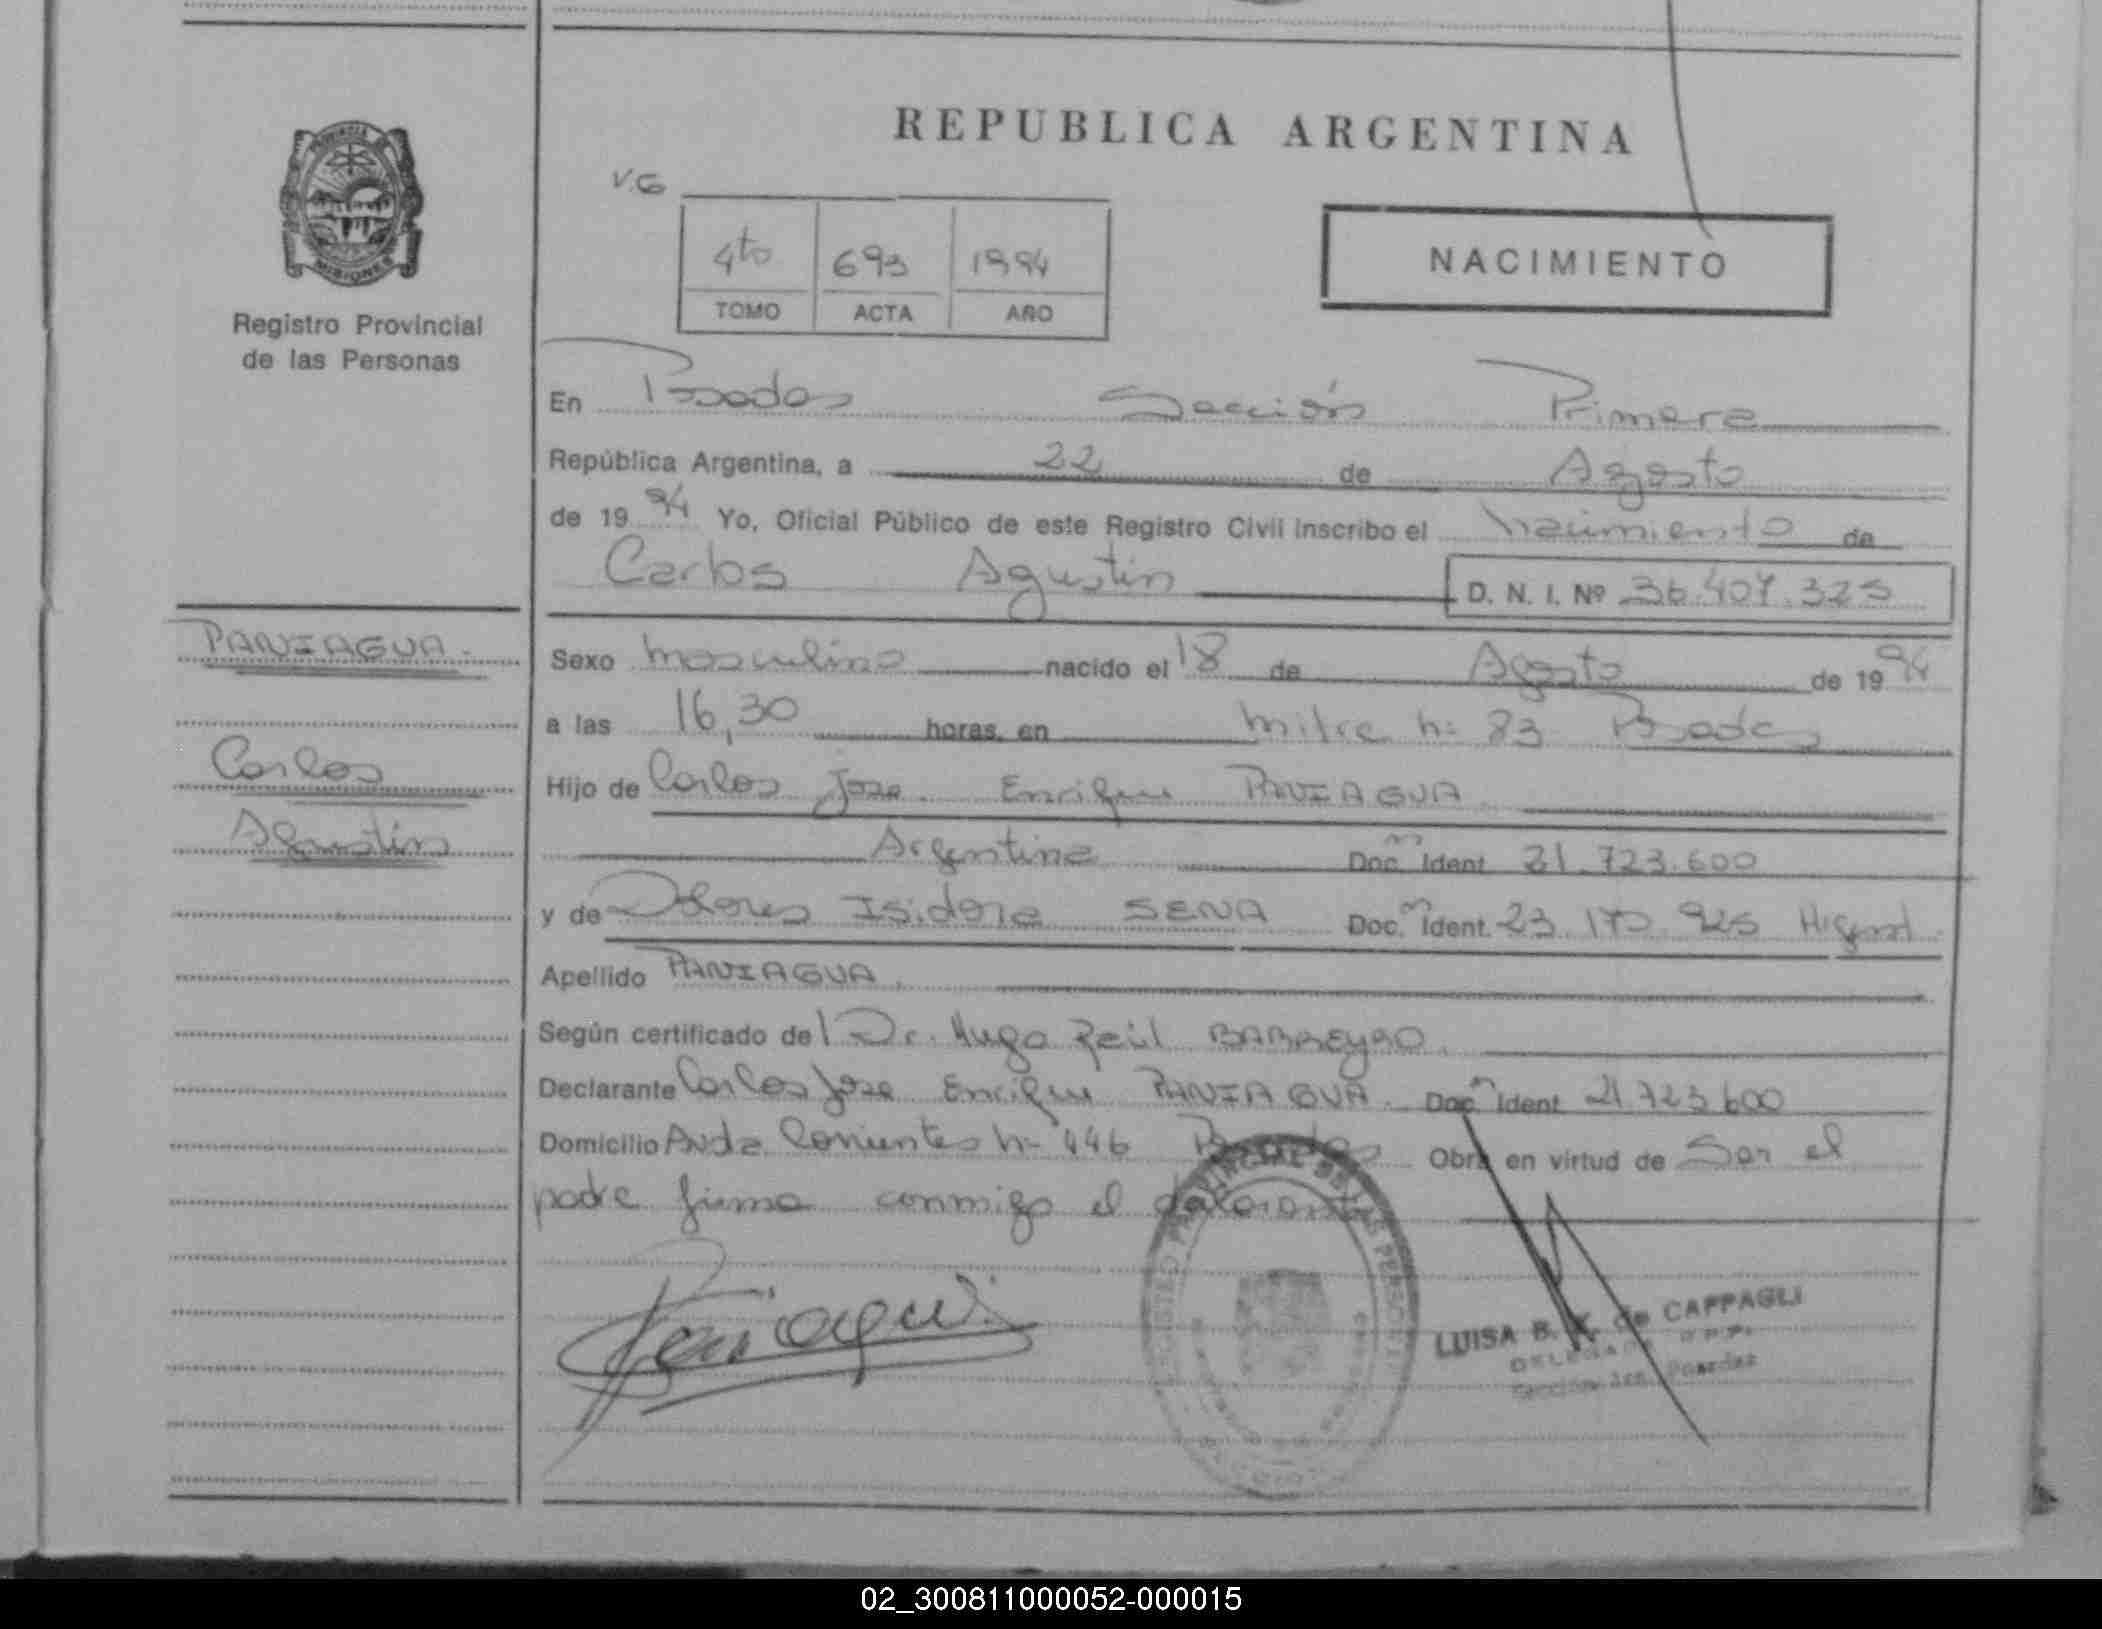 REPUBLICA ARGENTINA
V.G
PROVINCIA DE
MISIONES
4to 693 1994
TOMO ACTA AÑO
NACIMIENTO
Registro Provincial
de las Personas
En Posadas Sección Primera
República Argentina, a 22 de Agosto
de 1994 Yo, Oficial Público de este Registro Civil inscribo el Nacimiento de
Carlos Agustín D. N. I. Nº 36.407.325
PANIAGUA.
Sexo Masculino nacido el 18 de Agosto de 1994
a las 16,30 horas, en Mitre nº 83 Posadas
Carlos
Hijo de Carlos Jose Enrique PANIAGUA
Agustín
Argentina Doc. Ident. 21.723.600
y de Dolores Isidora SENA Doc. Ident. 23.170.925
Apellido PANIAGUA.
Según certificado del Dr. Hugo Raúl BARREYRO.
Declarante Carlos Jose Enrique PANIAGUA. Doc. Ident. 21.723.600
Domicilio Avda Corrientes nº 446 Posadas Obra en virtud de Ser el
padre firma conmigo el declarante
Paniagua
REGISTRO PROVINCIAL DE LAS PERSONAS
LUISA B. K. de CAPPAGLI
DELEGADA R.P.P.
Sección 1ra. Posadas
02_300811000052-000015